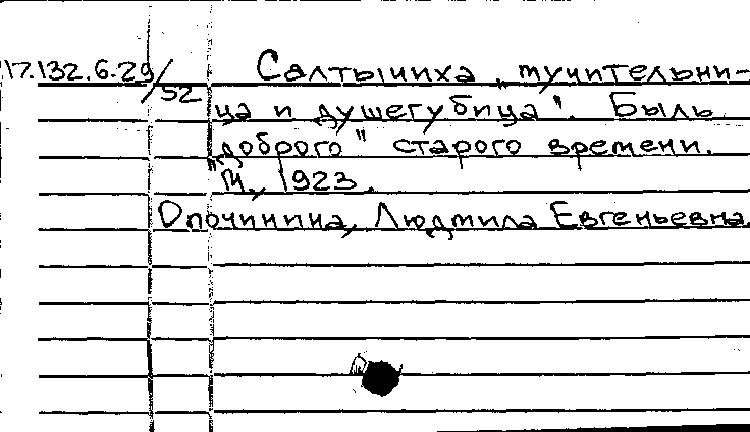 17.132.6.29/52 Салтычиха „тучительни-
ца и душегубица". Быль
„доброго" старого времени.
М., 1923.
Опочинина, Людмила Евгеньевна.